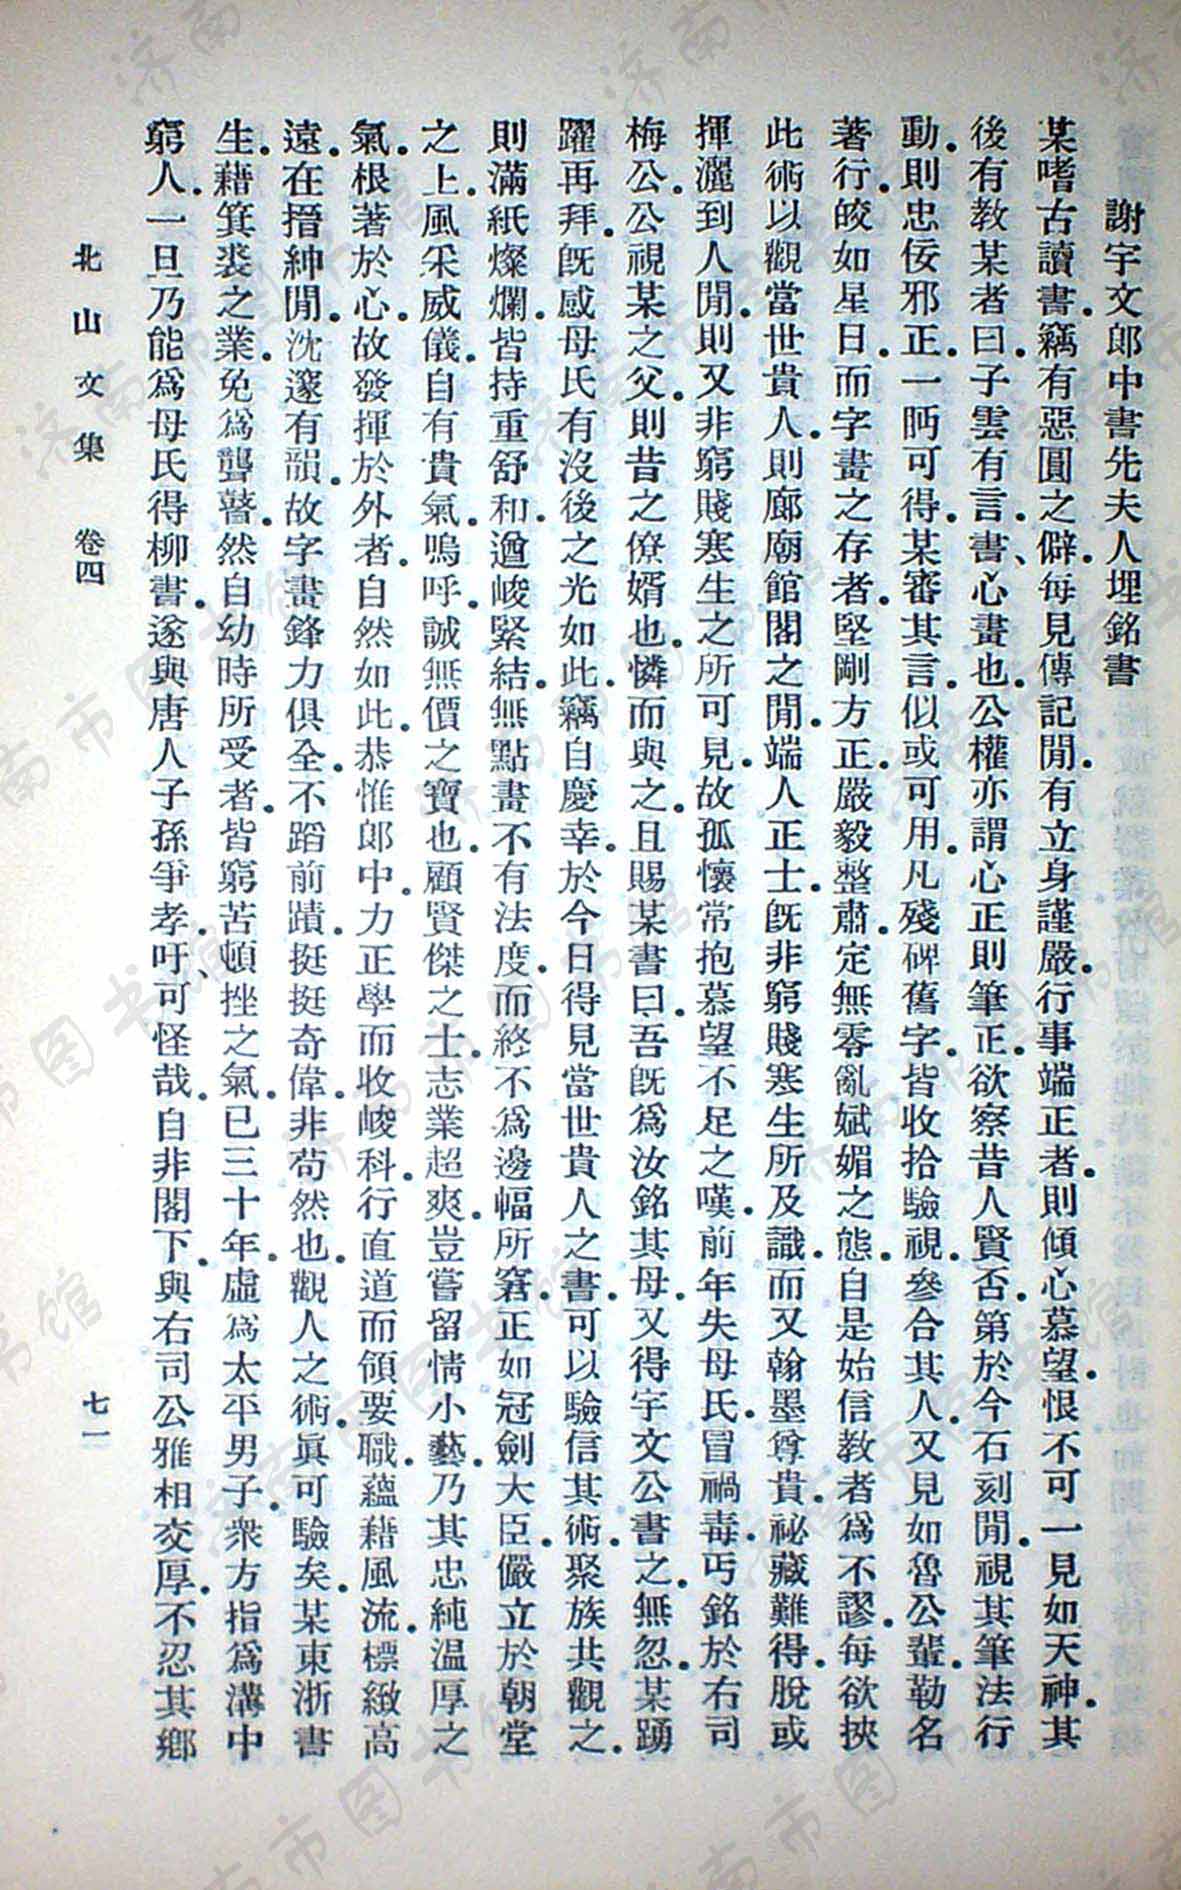 謝宇文郎中書先夫人埋銘書
某嗜古讀書。竊有惡圓之僻。每見傳記閒。有立身謹嚴。行事端正者。則傾心慕望。恨不可一見如天神。其
後有教某者曰。子雲有言。書、心畫也。公權亦謂心正則筆正。欲察昔人賢否。第於今石刻閒。視其筆法行
動。則忠佞邪正。一眄可得。某審其言。似或可用。凡殘碑舊字。皆收拾驗視。參合其人。又見如魯公輩。勒名
著行。皎如星日。而字畫之存者。堅剛方正。嚴毅整肅。定無零亂娬媚之態。自是始信教者爲不謬。每欲挾
此術以觀當世貴人。則廊廟館閣之閒。端人正士。旣非窮賤寒生所及識。而又翰墨尊貴。祕藏難得。脫或
揮灑到人閒。則又非窮賤寒生之所可見。故孤懷常抱慕望不足之嘆。前年失母氏。冒禍毒丐銘於右司
梅公。公視某之父。則昔之僚婿也。憐而與之。且賜某書曰。吾旣爲汝銘其母。又得宇文公書之。無忽。某踴
躍再拜。旣感母氏有沒後之光如此。竊自慶幸。於今日得見當世貴人之書。可以驗信其術。聚族共觀之。
則滿紙燦爛。皆持重舒和。遒峻緊結。無點畫不有法度。而終不爲邊幅所窘。正如冠劍大臣。儼立於朝堂
之上。風采威儀。自有貴氣。嗚呼。誠無價之寶也。顧賢傑之士。志業超爽。豈嘗留情小藝。乃其忠純溫厚之
氣。根著於心。故發揮於外者。自然如此。恭惟郎中。力正學而收峻科。行直道而領要職。蘊藉風流。標緻高
遠。在搢紳閒。沈邃有韻。故字畫鋒力俱全。不蹈前蹟。挺挺奇偉。非苟然也。觀人之術。眞可驗矣。某東浙書
生。藉箕裘之業。免爲聾瞽。然自幼時所受者。皆窮苦頓挫之氣。已三十年。虛爲太平男子。衆方指爲溝中
窮人。一旦乃能爲母氏得柳書。遂與唐人子孫爭孝。吁、可怪哉。自非閣下。與右司公雅相交厚。不忍其鄉
北山文集 卷四 七一